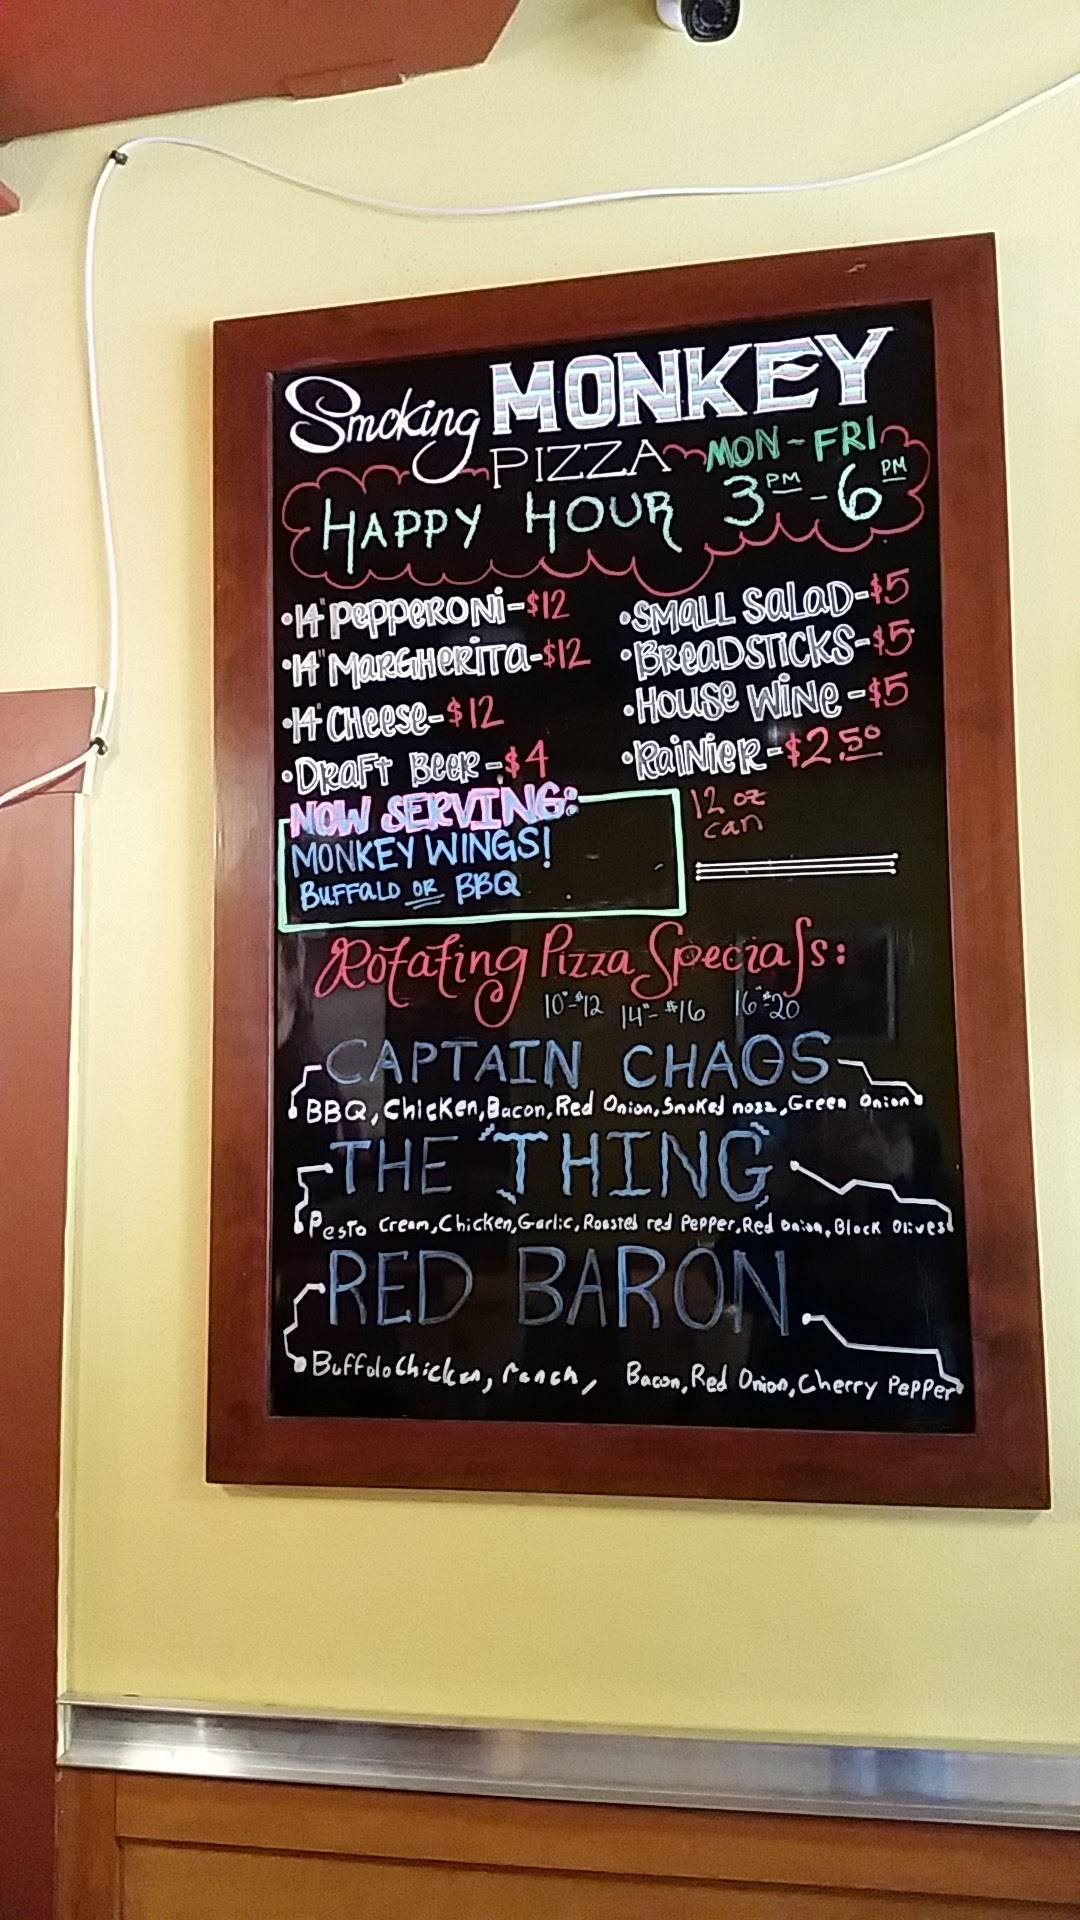 Smoking MONKEY
PIZZA
MON-FRI
HAPPY HOUR 3PM-6PM
•14" Pepperoni-$12
•14" Margherita-$12
•14" Cheese-$12
•Draft Beer-$4
•Small Salad-$5
•Breadsticks-$5
•House Wine-$5
•Rainier-$2.50
12 oz
can
NOW SERVING:
MONKEY WINGS!
BUFFALO OR BBQ
Rotating Pizza Specials:
10"-$12 14"-$16 16"-$20
CAPTAIN CHAOS
BBQ, Chicken, Bacon, Red Onion, Smoked mozz, Green Onion
THE THING
Pesto Cream, Chicken, Garlic, Roasted red Pepper, Red onion, Black Olives
RED BARON
Buffalo Chicken, ranch, Bacon, Red Onion, Cherry Pepper